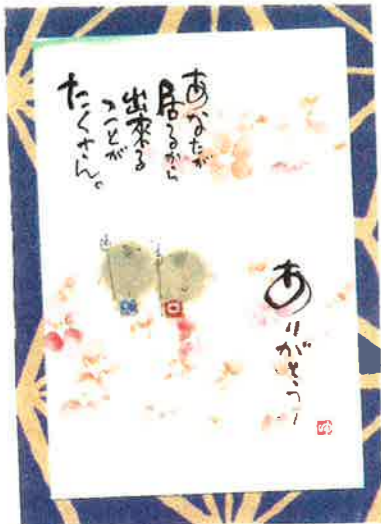 あなたが
居るから
出来る
ことが
たくさん。
ありがとう